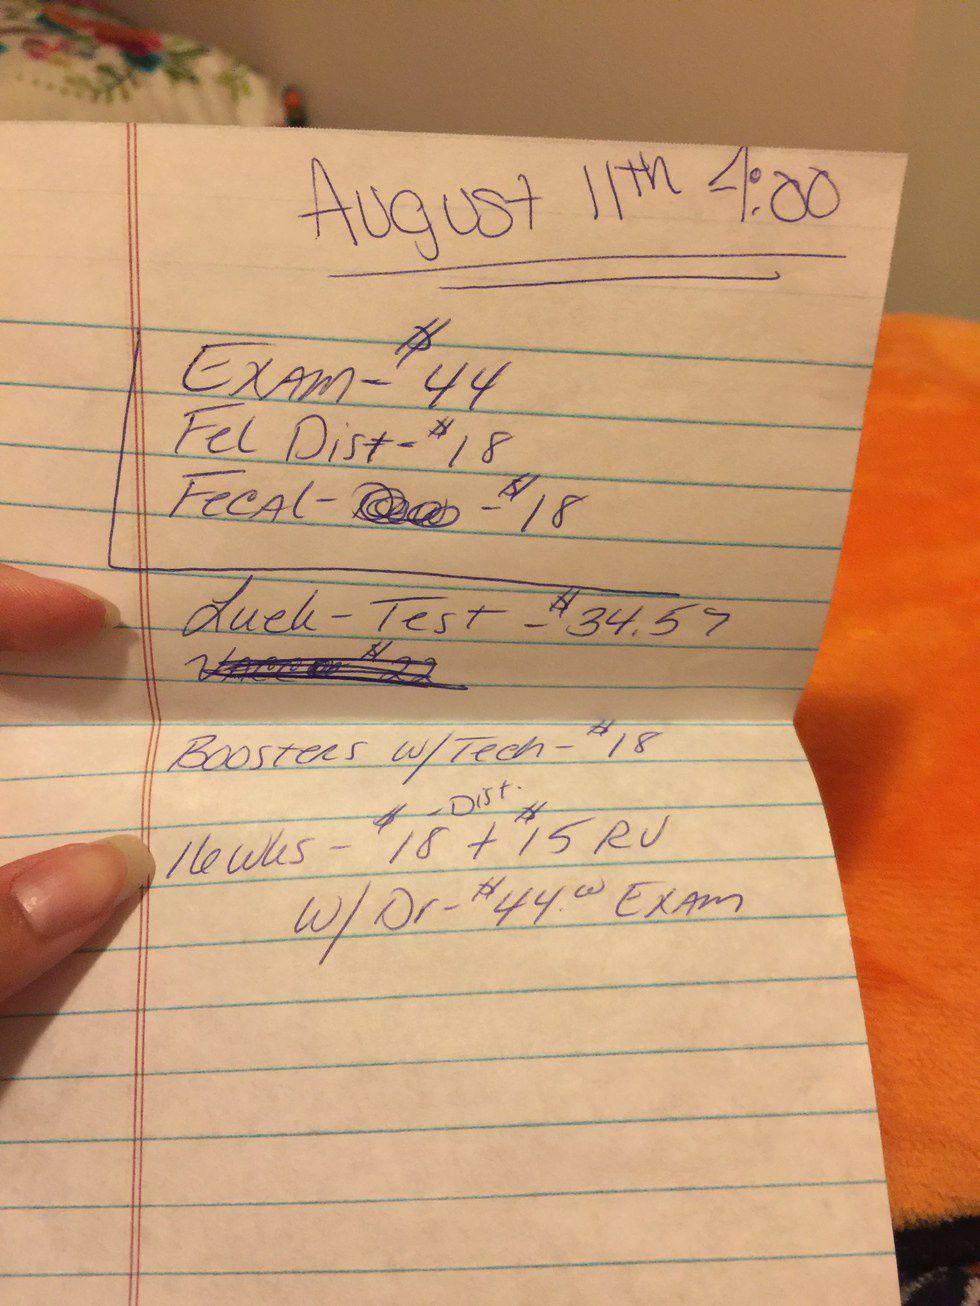 August 11th 4:00
Exam - $44
Fel Dist - $18
Fecal - - $18
Luek - Test - $34.57
$22
Boosters w/Tech - $18
- Dist.
16wks - $18 + $15 RV
w/ Dr - $44.00 Exam